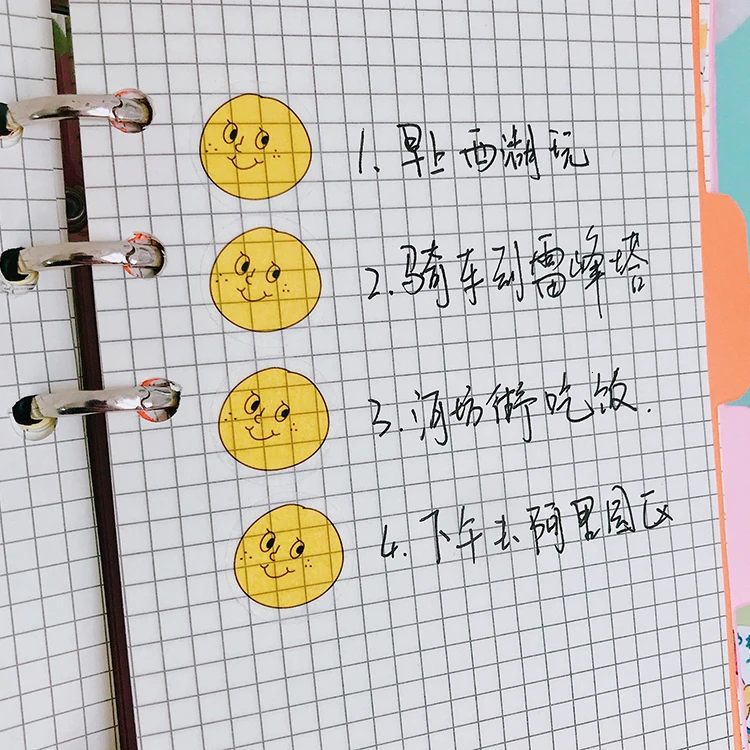 1. 早上西湖玩
2. 骑车到雷峰塔
3. 河坊街吃饭.
4. 下午去阿里园区